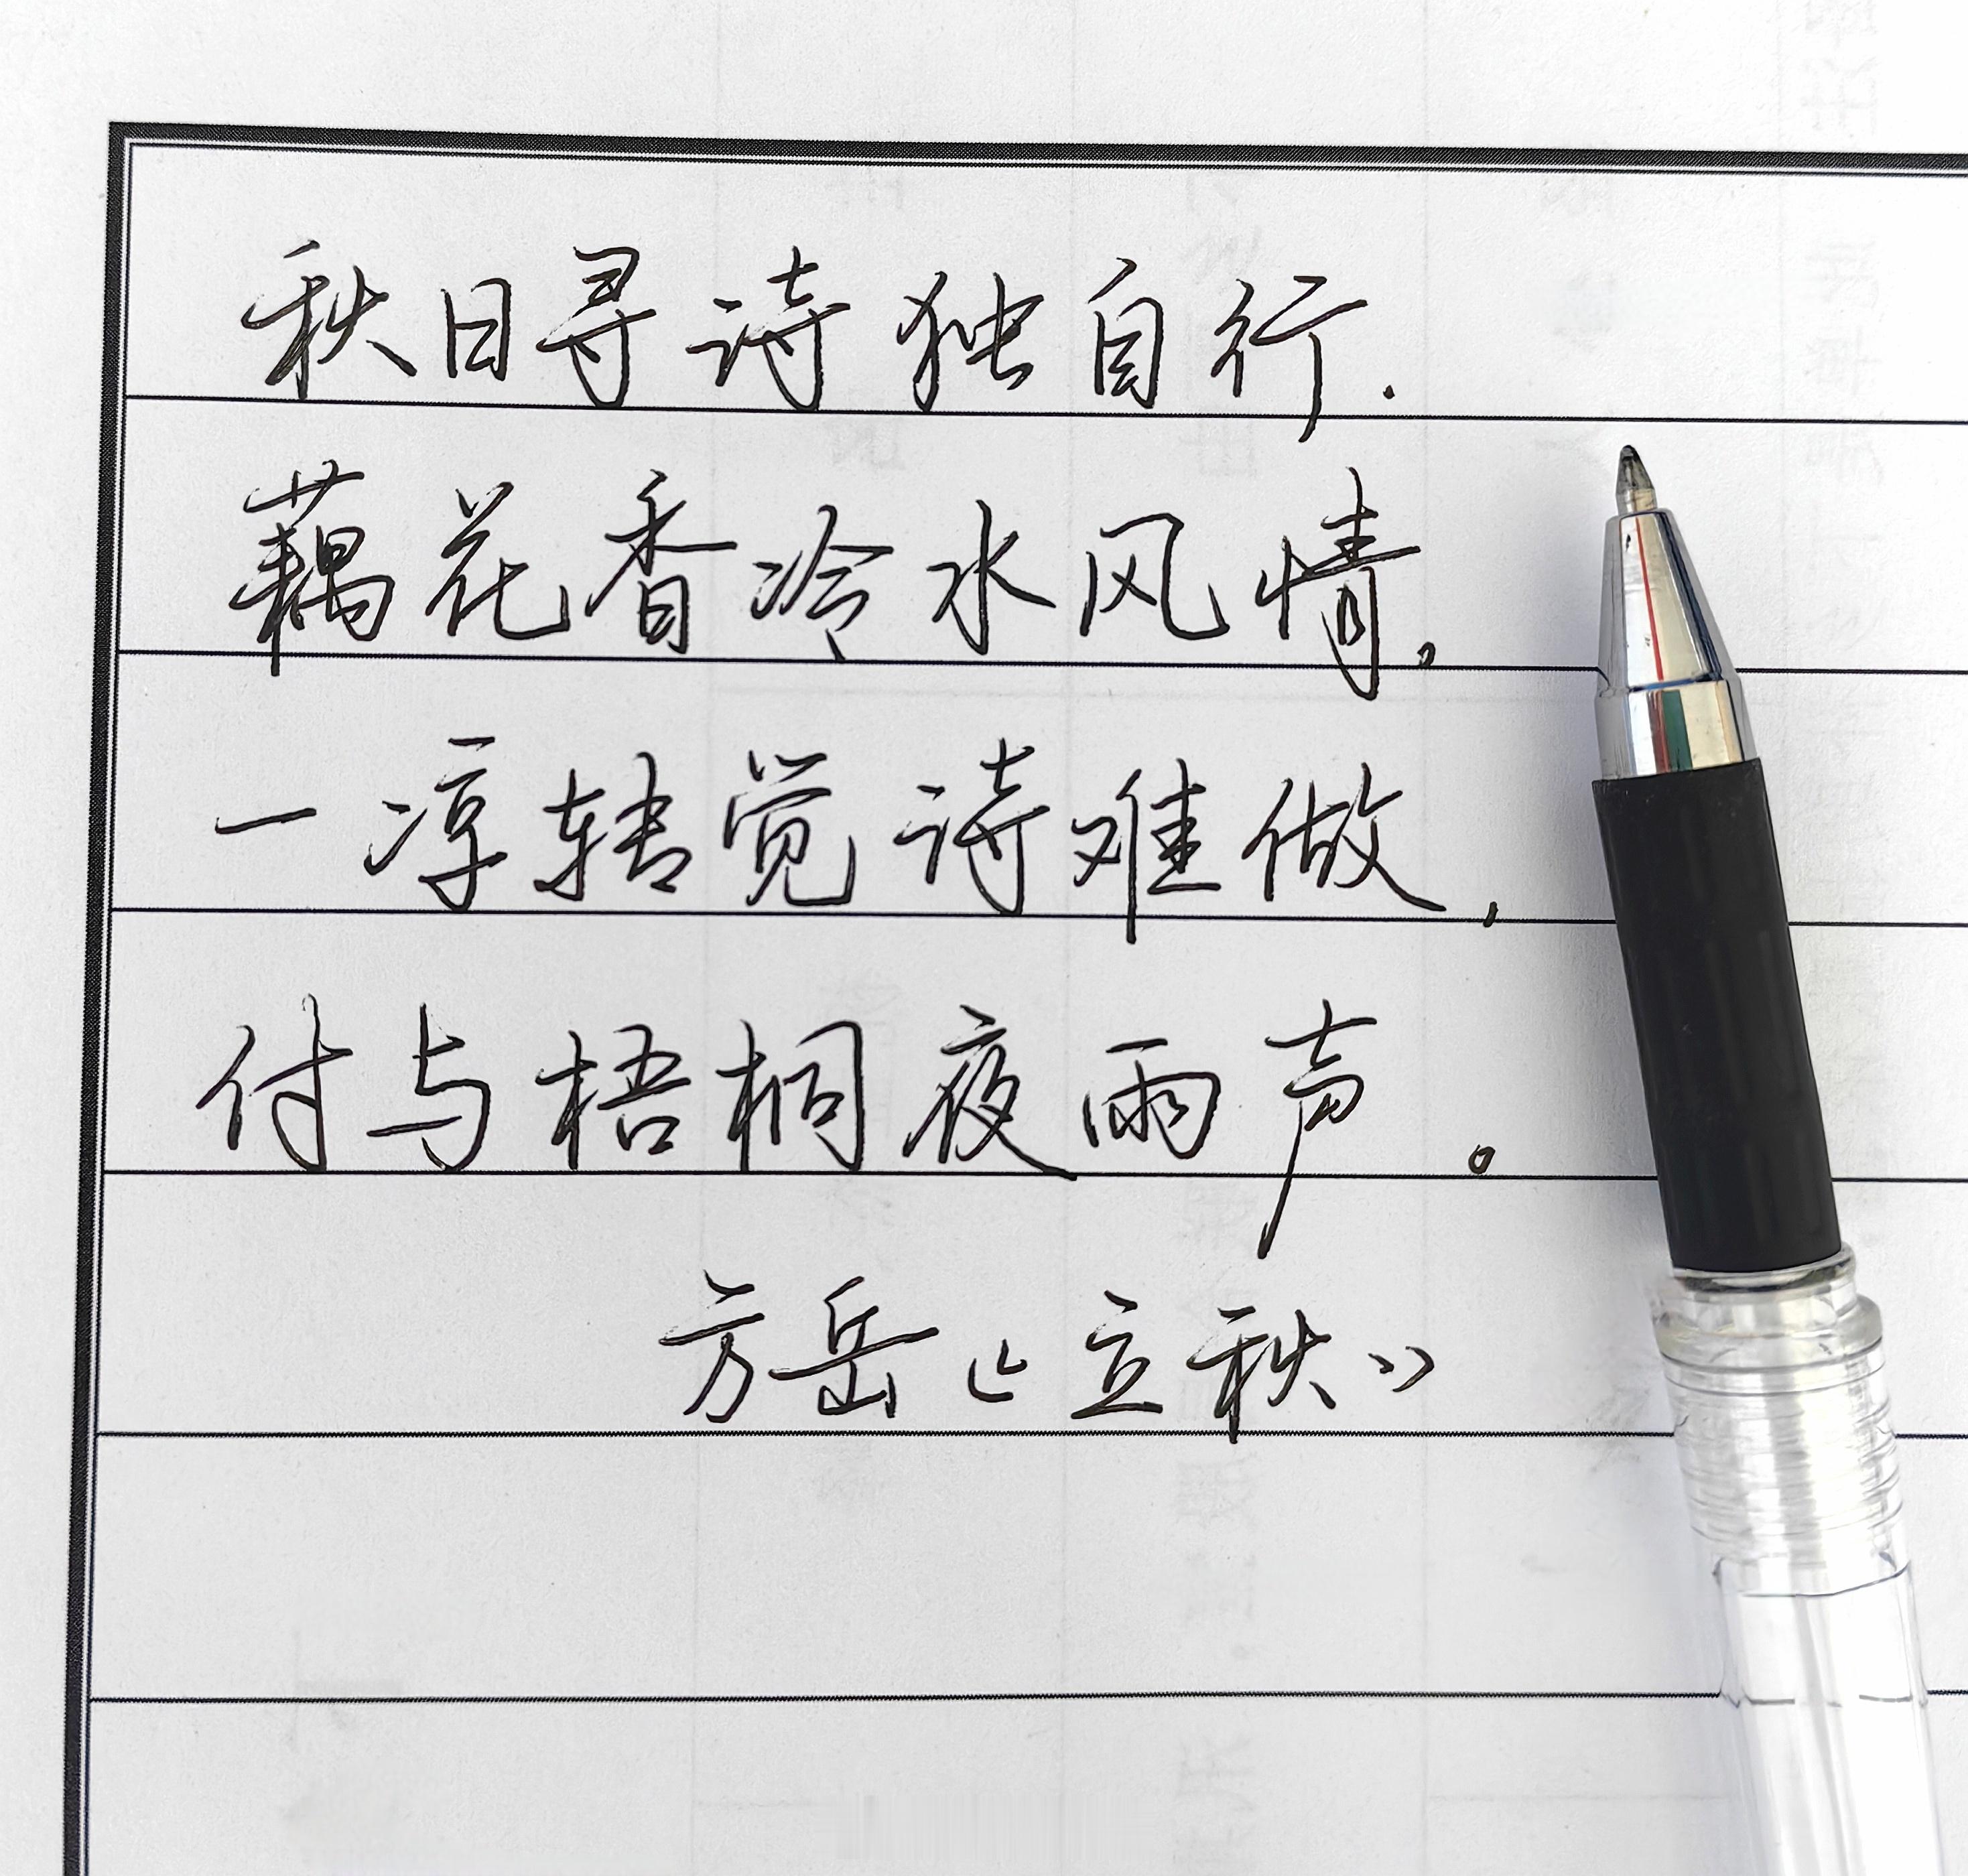 秋日寻诗独自行.
藕花香冷水风情，
一凉转觉诗难做，
付与梧桐夜雨声。
方岳《立秋》